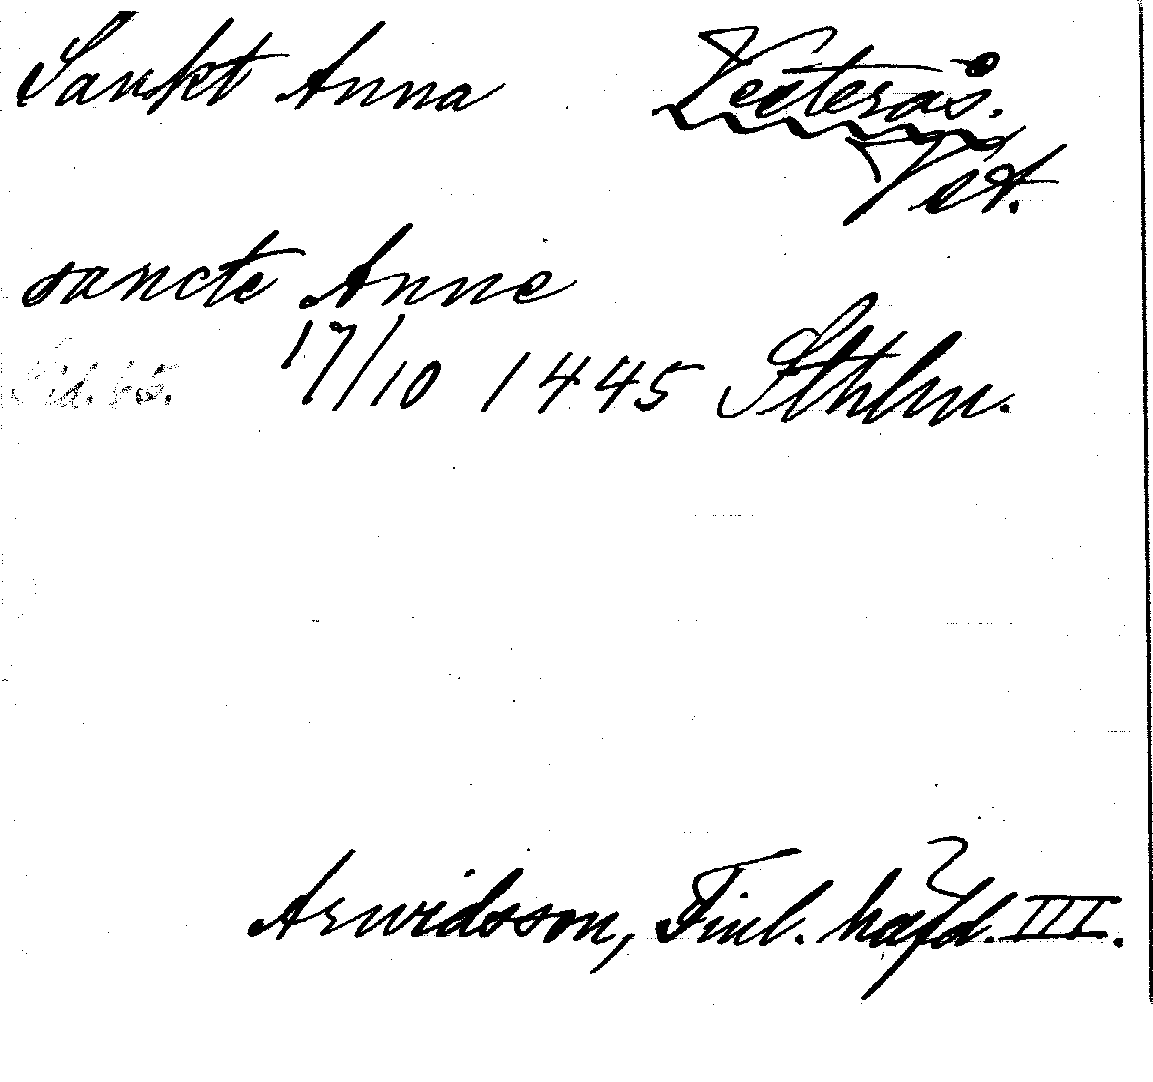 Sankt Anna Vesterås.
Vet.
sancte Anne
Sid. 65. 17/10 1445 Sthlm.
Arwidsson, Finl. häfd. III.